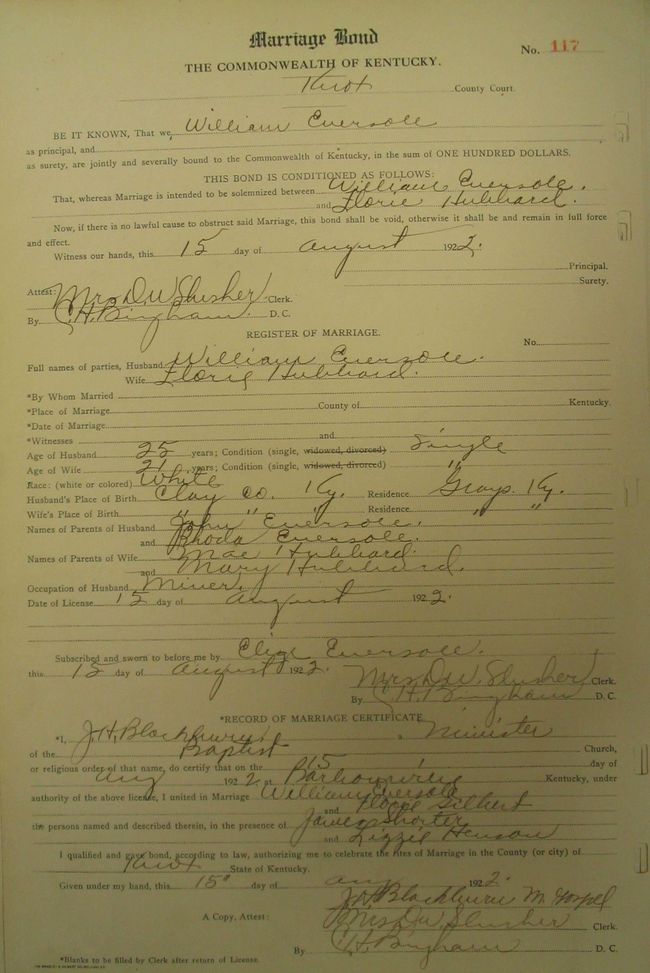 Marriage Bond
No. 117
THE COMMONWEALTH OF KENTUCKY.
Knox County Court.
BE IT KNOWN, That we, William Eversole
as principal, and
as surety, are jointly and severally bound to the Commonwealth of Kentucky, in the sum of ONE HUNDRED DOLLARS.
THIS BOND IS CONDITIONED AS FOLLOWS:
That, whereas Marriage is intended to be solemnized between William Eversole.
and Florie Hubbard.
Now, if there is no lawful cause to obstruct said Marriage, this bond shall be void, otherwise it shall be and remain in full force
and effect.
Witness our hands, this 15 day of August 1922.
Principal.
Surety.
Attest: Mrs D.W. Slusher Clerk.
By C.H. Bingham. D. C.
REGISTER OF MARRIAGE.
No.
Full names of parties, Husband William Eversole.
Wife Florie Hubbard.
*By Whom Married
*Place of Marriage County of Kentucky.
*Date of Marriage
*Witnesses and
Age of Husband 25 years; Condition (single, widowed, divorced) Single
Age of Wife 21 years; Condition (single, widowed, divorced) "
Race: (white or colored) White
Husband's Place of Birth Clay Co. Ky. Residence Grays. Ky.
Wife's Place of Birth " " " Residence " "
Names of Parents of Husband John Eversole.
and Rhoda Eversole.
Names of Parents of Wife Mae Hubbard.
and Mary Hubbard.
Occupation of Husband Miner.
Date of License 15 day of August 1922.
Subscribed and sworn to before me by Elige Eversole.
this 15 day of August 1922. Mrs D.W. Slusher Clerk.
By C.H. Bingham D. C.
*RECORD OF MARRIAGE CERTIFICATE
*I, J.H. Blackburn, a Minister
of the Baptist Church,
or religious order of that name, do certify that on the 15 day of
Aug 1922 at Barbourville Kentucky, under
authority of the above license, I united in Marriage William Eversole
and Gilbert
the persons named and described therein, in the presence of James Shorter
and Lizzie Henson
I qualified and gave bond, according to law, authorizing me to celebrate the rites of Marriage in the County (or city) of
Knox State of Kentucky.
Given under my hand, this 15" day of Aug 1922.
J.H. Blackburn M. Gospel
A Copy, Attest: Mrs D.W. Slusher Clerk.
By C.H. Bingham D. C.
*Blanks to be filled by Clerk after return of License.